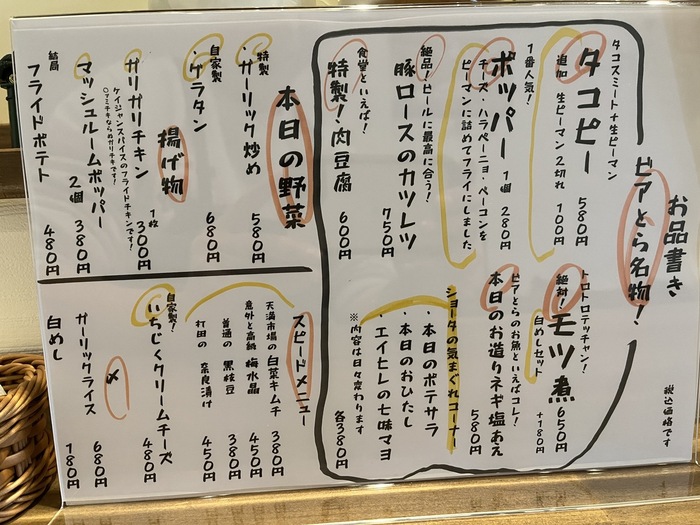 お品書き
税込価格です
ビアとら名物！
タコスミート＋生ピーマン
タコピー 580円
追加 生ピーマン2切れ 100円
1番人気！
ポッパー 1個 280円
チーズ・ハラペーニョ・ベーコンを
ピーマンに詰めてフライにしました
絶品！ビールに最高に合う！
豚ロースのカツレツ 750円
食堂といえば！
特製！肉豆腐 600円
トロトロテッチャン！
絶対！モツ煮 650円
白めしセット ＋180円
ビアとらのお魚といえばコレ！
本日のお造りネギ塩あえ 580円
ショータの気まぐれコーナー
・本日のポテサラ
・本日のおひたし
・エイヒレの七味マヨ
各380円
※内容は日々変わります
本日の野菜
特製
・ガーリック炒め 580円
自家製
・グラタン 680円
揚げ物
ガリガリチキン 1枚 300円
ケイジャンスパイスのフライドチキンです！
○ァミチキならぬガリチキです！
マッシュルームポッパー 2個 380円
結局
フライドポテト 480円
スピードメニュー
天満市場の 白菜キムチ 380円
意外と高級 梅水晶 450円
普通の 黒枝豆 380円
打田の 奈良漬け 450円
自家製！
いちじくクリームチーズ 480円
〆
ガーリックライス 680円
白めし 180円